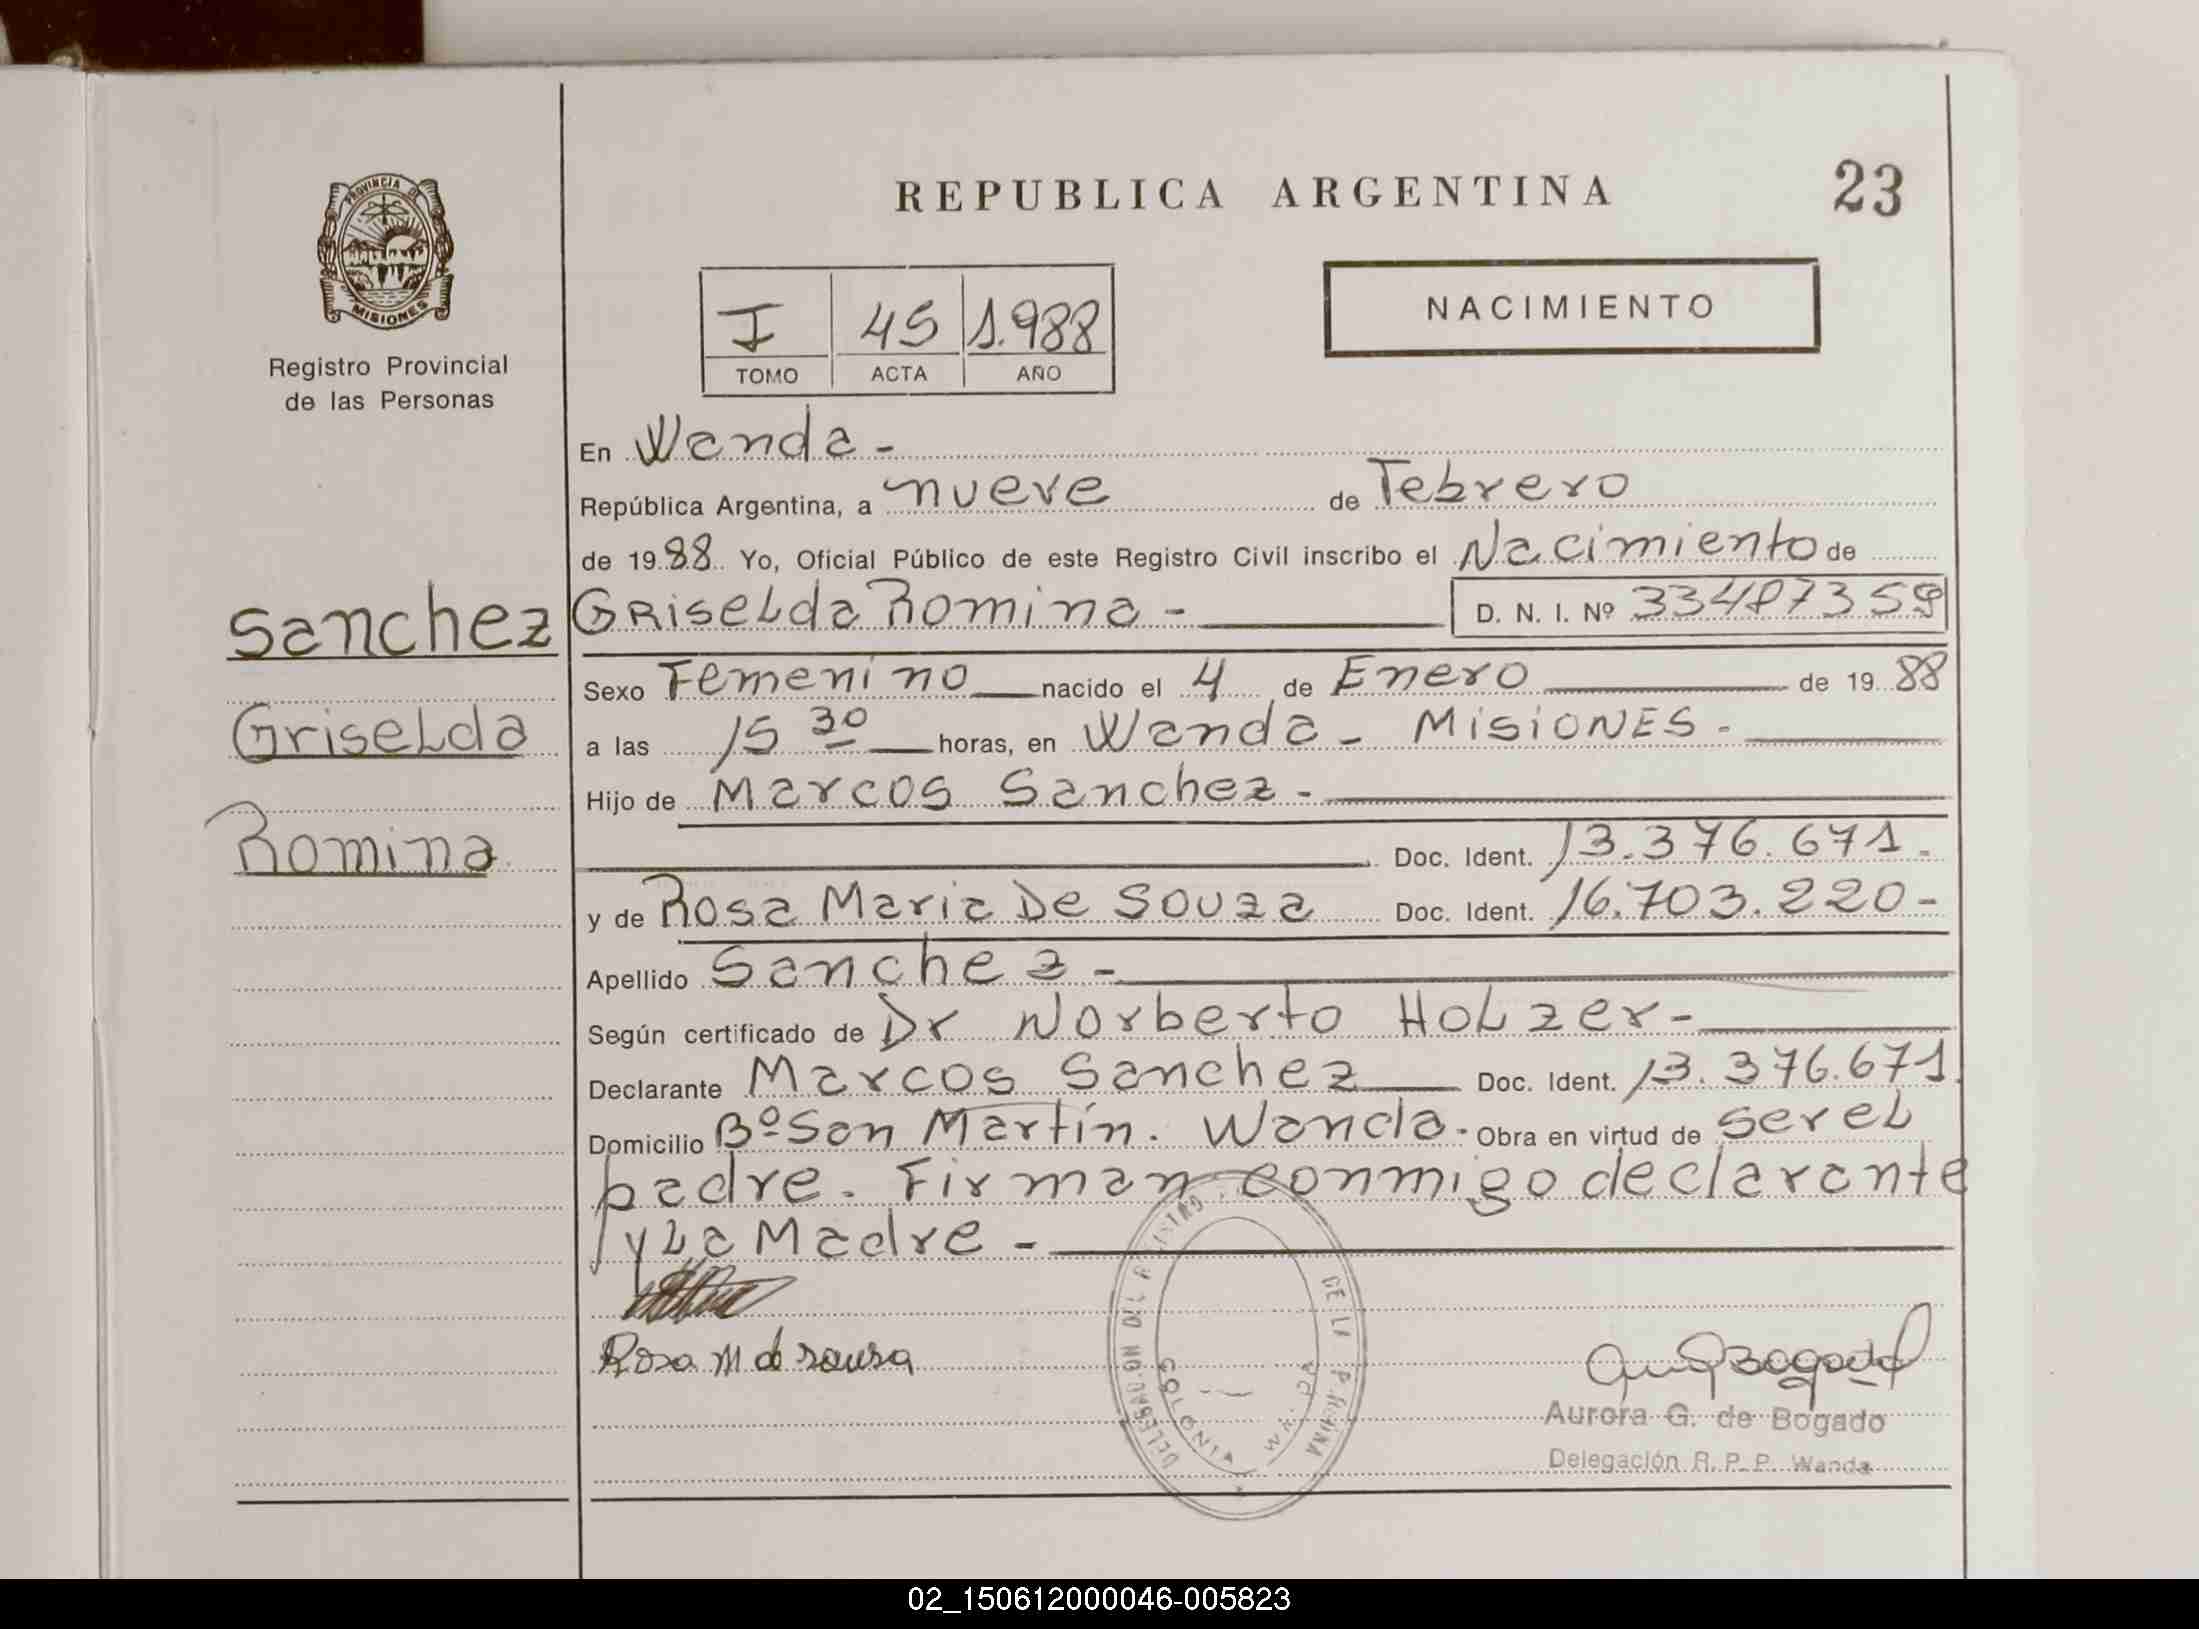 REPUBLICA ARGENTINA
23
PROVINCIA DE
MISIONES
Registro Provincial
de las Personas
I 45 1.988
TOMO ACTA AÑO
NACIMIENTO
En Wanda -
República Argentina, a nueve de Febrero
de 1988 Yo, Oficial Público de este Registro Civil inscribo el Nacimiento de
Sanchez
Griselda Romina - D. N. I. Nº 33487359
Griselda
Romina
Sexo Femenino nacido el 4 de Enero de 1988
a las 15 30 horas, en Wanda - Misiones -
Hijo de Marcos Sanchez -
Doc. Ident. 13.376.671 -
y de Rosa Maria De Souza Doc. Ident. 16.703.220 -
Apellido Sanchez -
Según certificado de Dr Norberto Holzer -
Declarante Marcos Sanchez Doc. Ident. 13.376.671
Domicilio Bº San Martín. Wanda. Obra en virtud de ser el
padre. Firman conmigo declarante
y La Madre -
Rosa M de sousa
COLONIA
Aurora G. de Bogado
Delegación R. P. P. Wanda
02_150612000046-005823